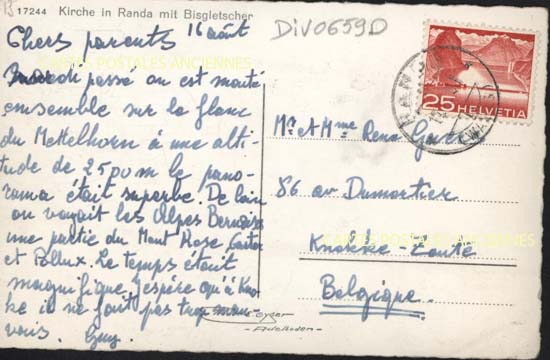 17244 Kirche in Randa mit Bisgletscher
DIV0659D
Chers parents 16 août
Mardi passé on est monté
ensemble sur le flanc
du Mettelhorn à une alti-
tude de 2500 m le pano-
rama était superbe. De loin
on voyait les Alpes Bernoises
une partie du Mont Rose, Castor
et Pollux. Le temps était
magnifique, j'espère qu'à Kno-
kke il ne fait pas trop mau-
vais. Guy.
Mr et Mme René
86 av Dumortier
Knokke-Zoute
Belgique
25 HELVETIA
RANDA
Gyger
Adelboden
CARTES POSTALES ANCIENNES